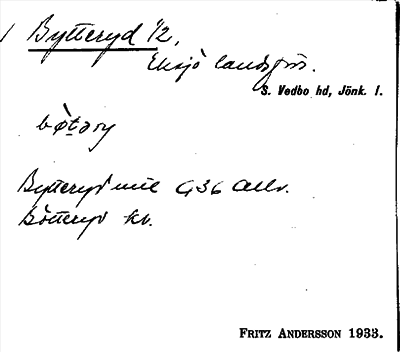 Bytteryd 1/2,
Eksjö landsförs.
S. Vedbo hd, Jönk. l.
bø̀təry
Bytteryd mtl G36 Allv.
Bötteryd kv.
FRITZ ANDERSSON 1933.